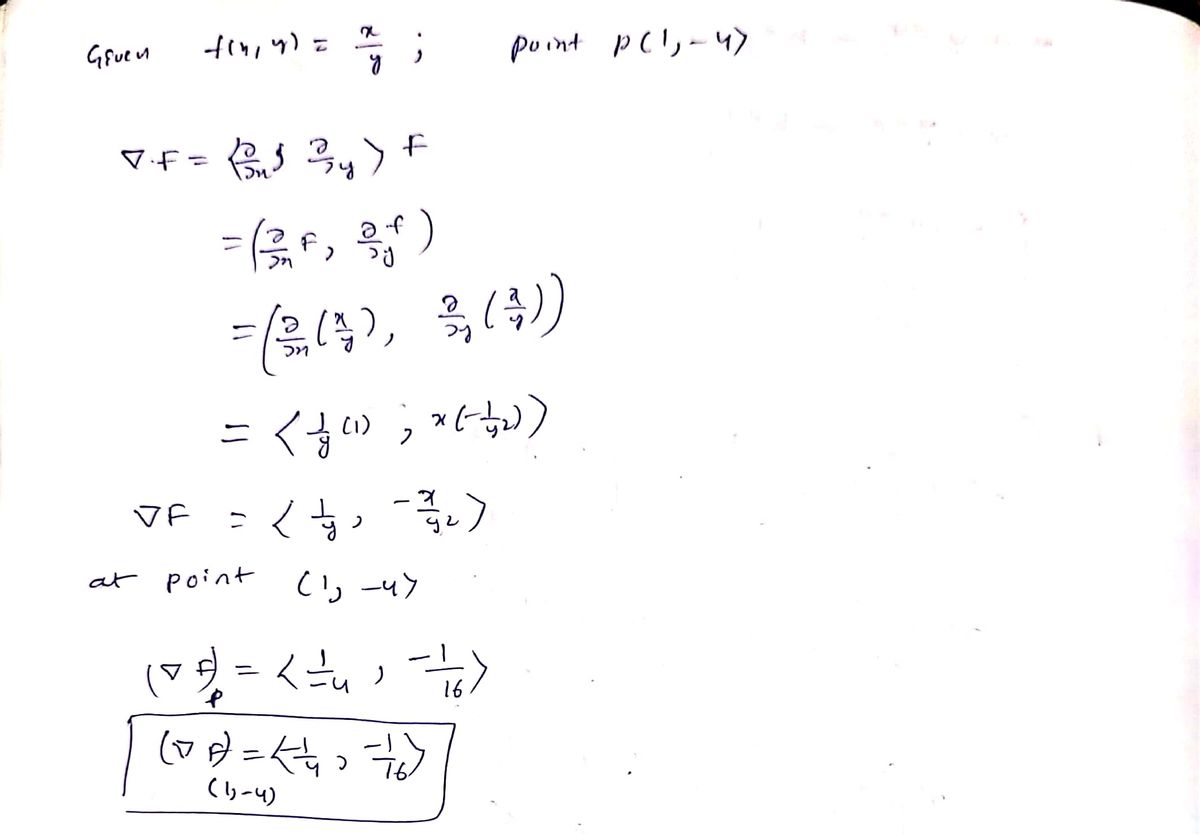 Given f(x, y) = x/y ; point p(1, -4)
∇.F = ⟨∂/∂x, ∂/∂y⟩ F
= (∂/∂x F, ∂f/∂y)
= (∂/∂x (x/y), ∂/∂y (x/y))
= ⟨1/y (1) ; x(-1/y2)⟩
∇F = ⟨1/y, -x/y2⟩
at point (1, -4⟩
(∇F)p = ⟨1/-4, -1/16⟩
(∇F) = ⟨-1/4, -1/16⟩
(1,-4)